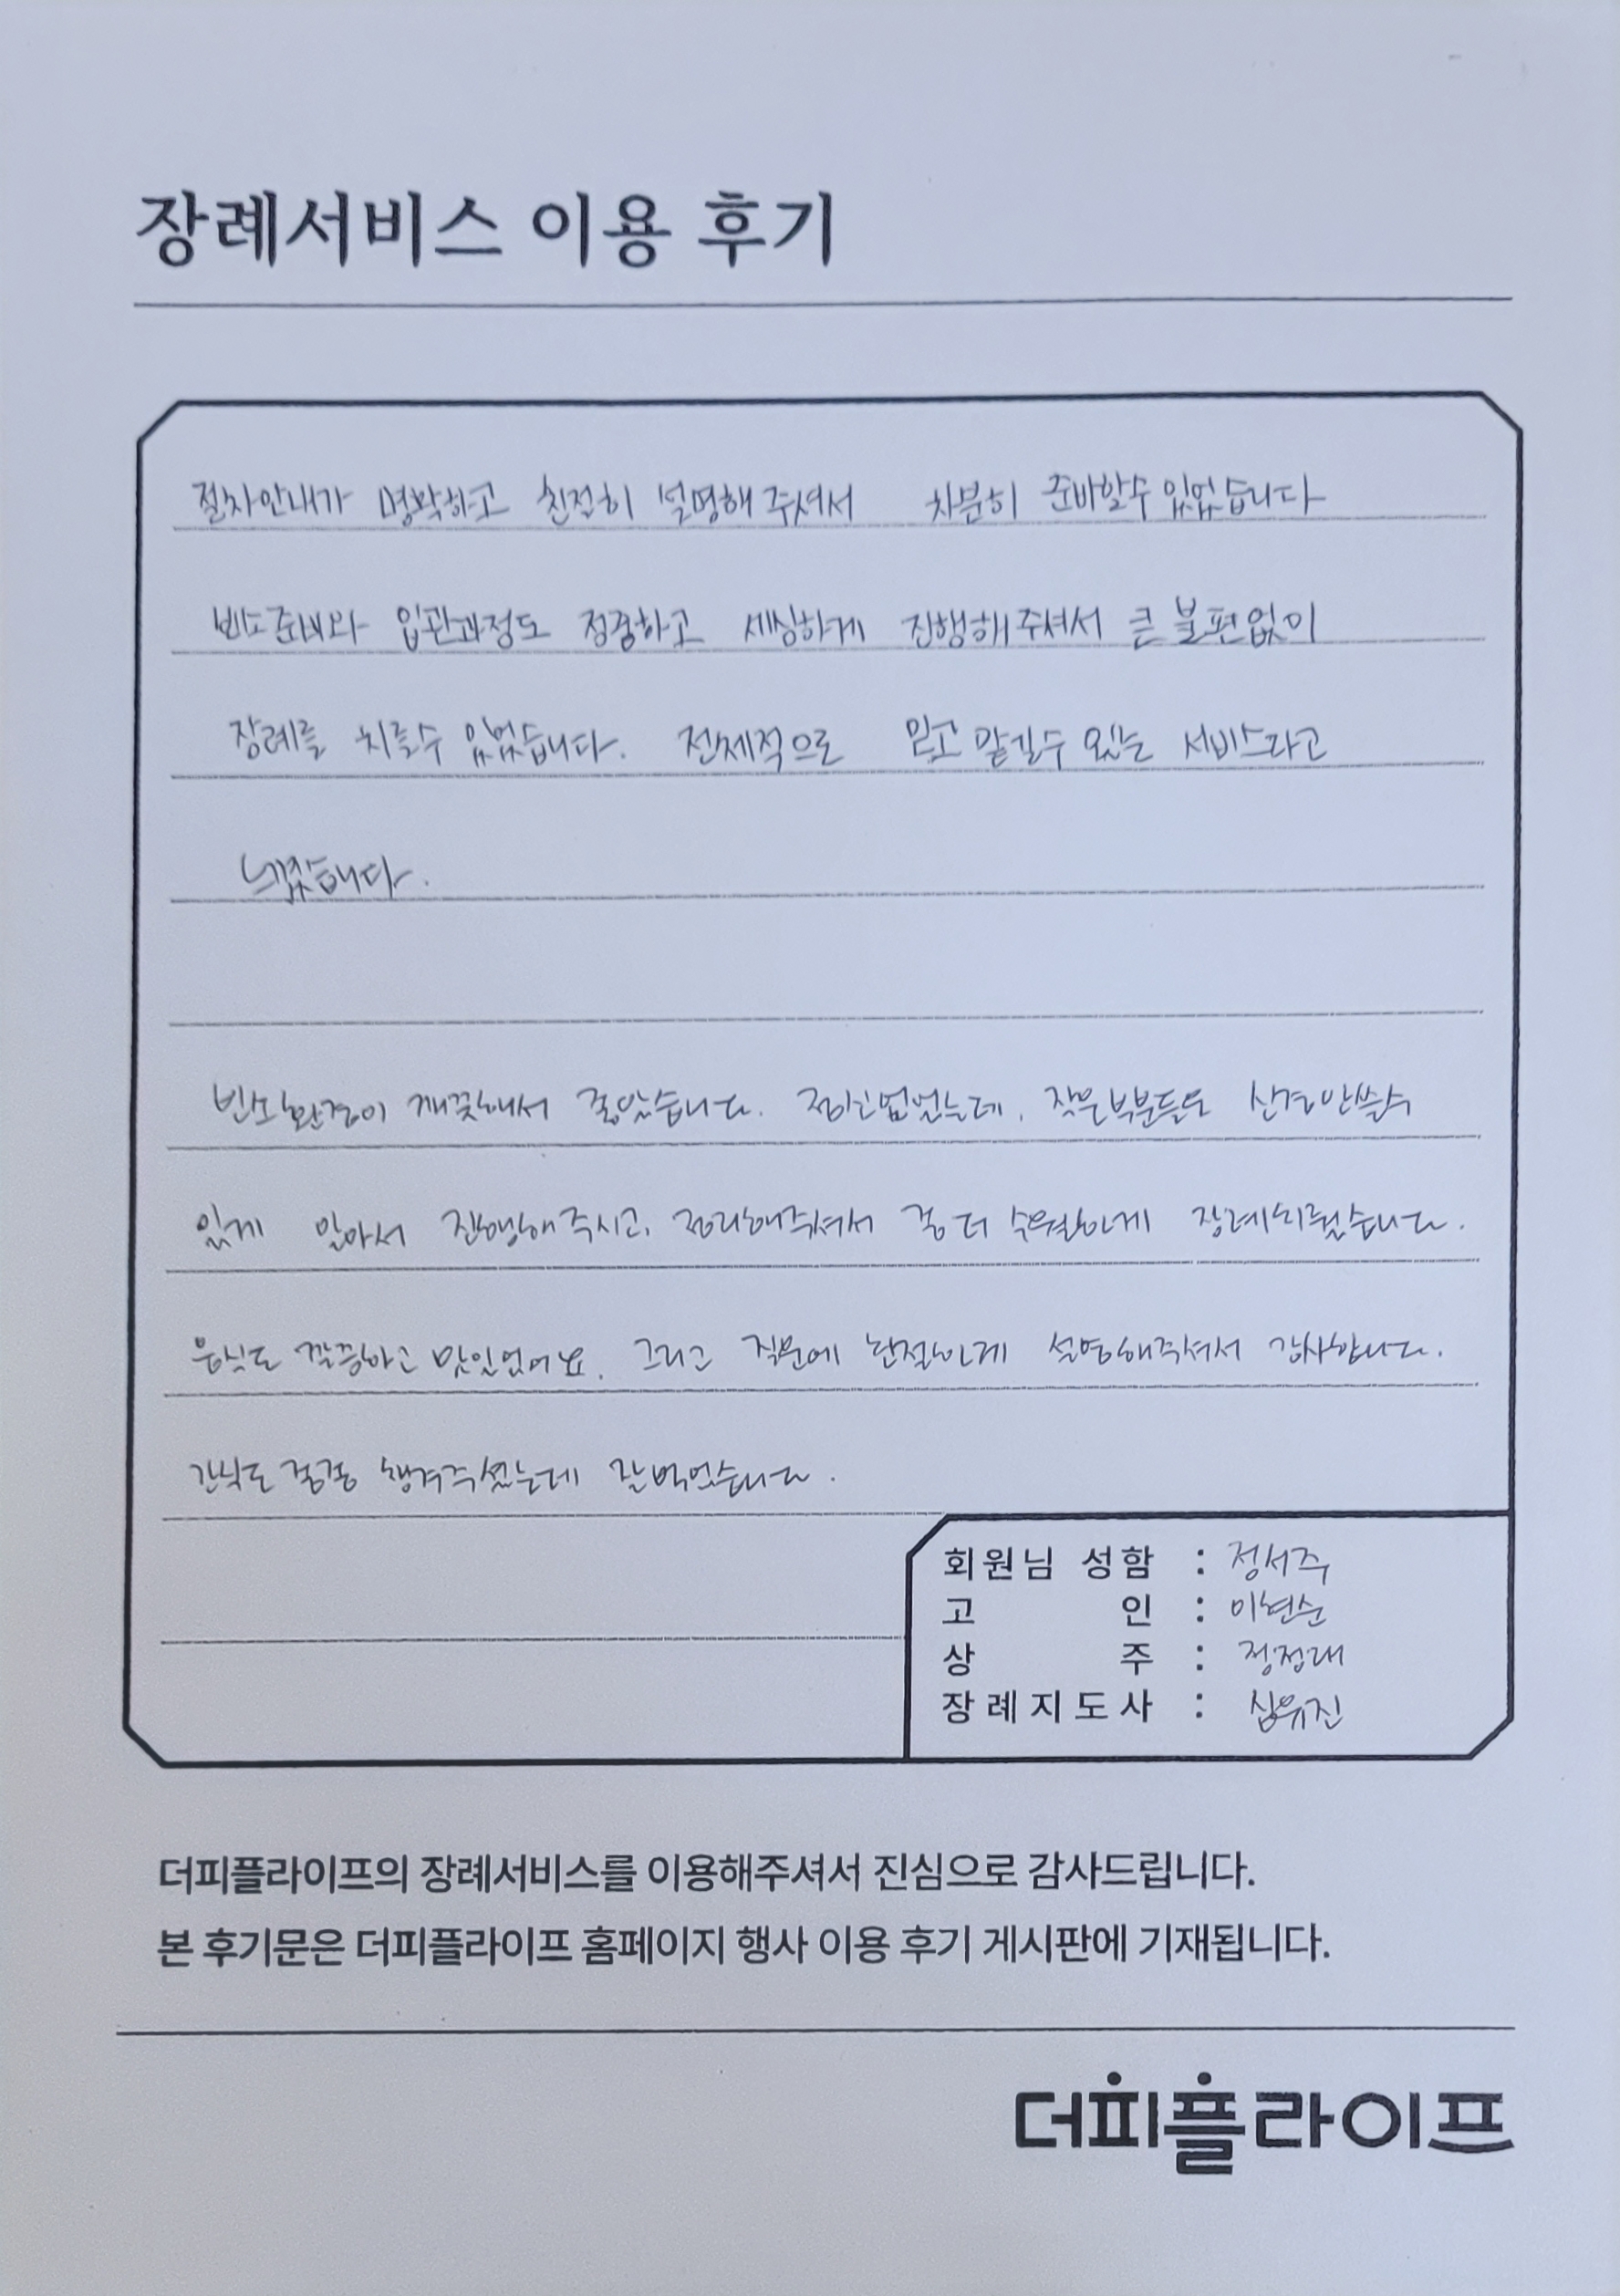 장례서비스 이용 후기
절차안내가 명확하고 친절히 설명해 주셔서 차분히 준비할수 있었습니다
빈소준비와 입관과정도 정중하고 세심하게 진행해주셔서 큰 불편없이
장례를 치를수 있었습니다. 전체적으로 믿고 맡길수 있는 서비스라고
느꼈습니다.
빈소환경이 깨끗해서 좋았습니다. 정신없었는데, 작은부분들도 신경안쓸수
있게 알아서 진행해주시고, 정리해주셔서 좀 더 수월하게 장례치뤘습니다.
음식도 깔끔하고 맛있었어요. 그리고 질문에 친절하게 설명해주셔서 감사합니다.
간식도 종종 챙겨주셨는데 잘먹었습니다.
회원님 성함 : 정서주
고 인 : 이현순
상 주 : 정정대
장례지도사 : 심유진
더피플라이프의 장례서비스를 이용해주셔서 진심으로 감사드립니다.
본 후기문은 더피플라이프 홈페이지 행사 이용 후기 게시판에 기재됩니다.
더피플라이프